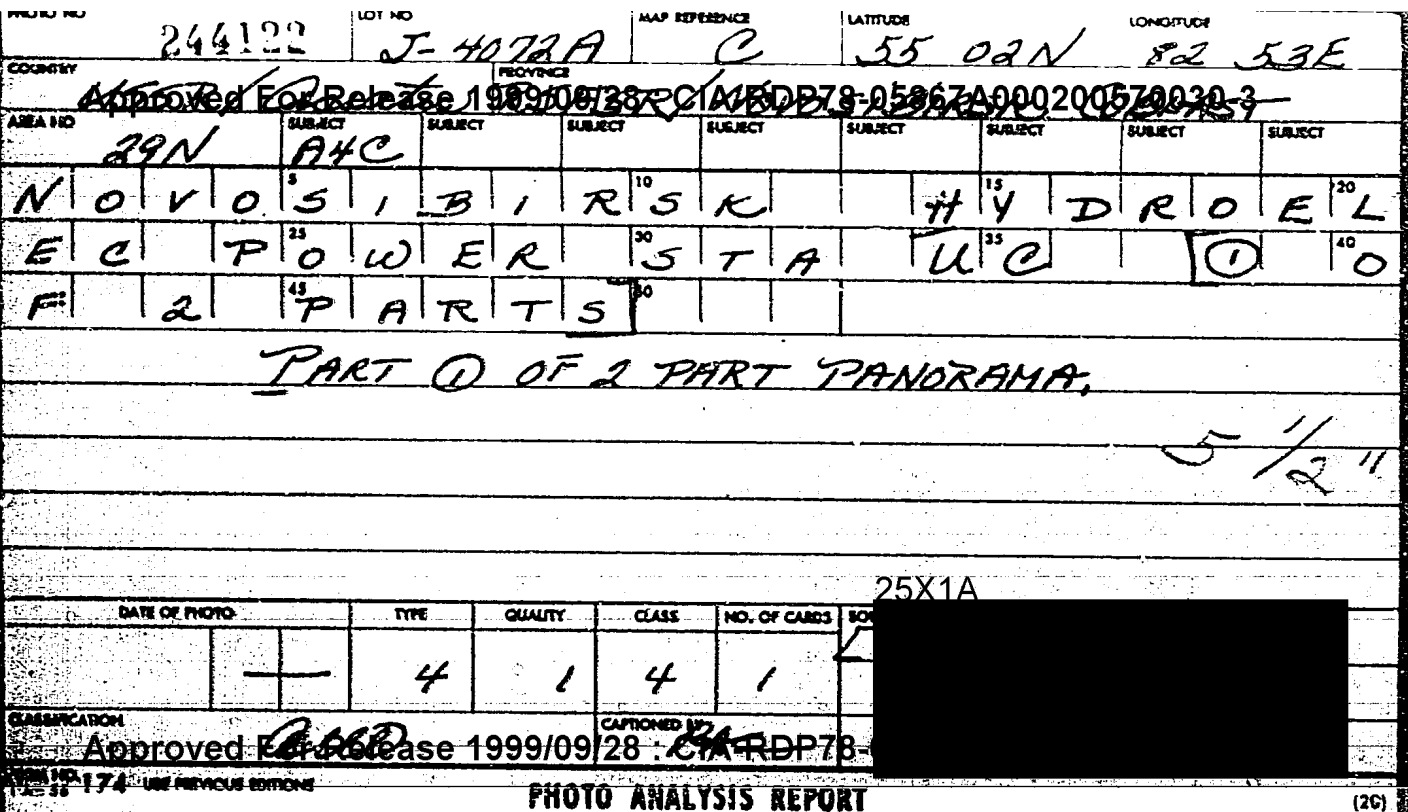 PHOTO NO LOT NO MAP REFERENCE LATITUDE LONGITUDE
244122 J-4072A C 55 02N 82 53E
COUNTRY PROVINCE
Approved For Release 1999/09/28 : CIA-RDP78-05867A000200570030-3
AREA NO SUBJECT SUBJECT SUBJECT SUBJECT SUBJECT SUBJECT SUBJECT SUBJECT
29N A4C
5 10 15 20
NOVOSIBIRSK HYDROEL
25 30 35 40
EC POWER STA UC ① O
45 50
F 2 PARTS
PART ① OF 2 PART PANORAMA.
5 1/2"
25X1A
DATE OF PHOTO TYPE QUALITY CLASS NO. OF CARDS
— 4 1 4 1
CLASSIFICATION CAPTIONED BY
Approved For Release 1999/09/28 : CIA-RDP78-
FORM NO. 174 USE PREVIOUS EDITIONS
PHOTO ANALYSIS REPORT (20)